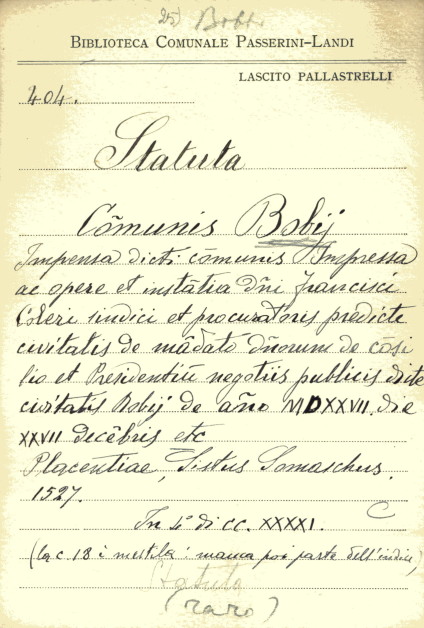 25) Bobbio
BIBLIOTECA COMUNALE PASSERINI-LANDI
LASCITO PALLASTRELLI
404.
Statuta
Cōmunis Bobij
Impensa dicti cōmunis Impressa
ac opere et instātia dñi Francisci
Coleri sindici et procuratoris predicte
civitatis de mādato dñorum de cōsi
lio et Presidentiū negotiis publicis dicte
civitatis Bobij de año MDXXVII. die
XXVII decēbris etc
Placentiae, Sistus Somaschus.
1527.
In 4° di cc. XXXXI. C
(la c. 18 è mutila: manca poi parte dell'indice)
Statuta
(raro)